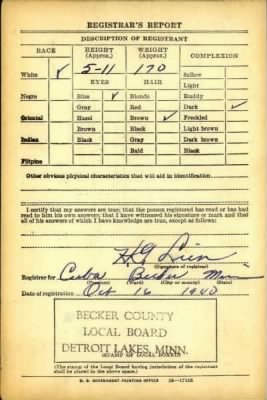 REGISTRAR'S REPORT
DESCRIPTION OF REGISTRANT
RACE HEIGHT (Approx.) WEIGHT (Approx.) COMPLEXION
White ✓ 5-11 170 Sallow
EYES HAIR Light
Negro Blue ✓ Blonde Ruddy
Gray Red Dark ✓
Oriental Hazel Brown ✓ Freckled
Brown Black Light brown
Indian Black Gray Dark brown
Bald Black
Filipino
Other obvious physical characteristics that will aid in identification
I certify that my answers are true; that the person registered has read or has had
read to him his own answers; that I have witnessed his signature or mark and that
all of his answers of which I have knowledge are true, except as follows:
(Signature of registrar)
Registrar for Cuba Becker Minn
(Precinct) (Ward) (City or county) (State)
Date of registration Oct 16 1940
BECKER COUNTY
LOCAL BOARD
DETROIT LAKES, MINN.
(STAMP OF LOCAL BOARD)
(The stamp of the Local Board having jurisdiction of the registrant
shall be placed in the above space.)
U. S. GOVERNMENT PRINTING OFFICE